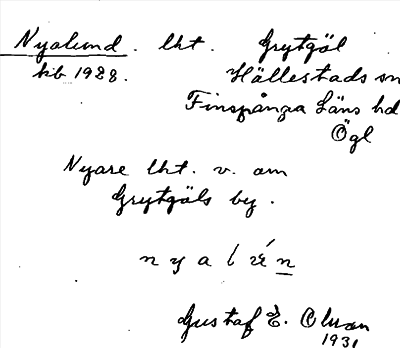 Nyalund. lht. Grytgöl
kb 1928. Hällestads sn
Finspånga Läns hd
Ögl
Nyare lht. v. om
Grytgöls by.
Gustaf E. Olman
1931